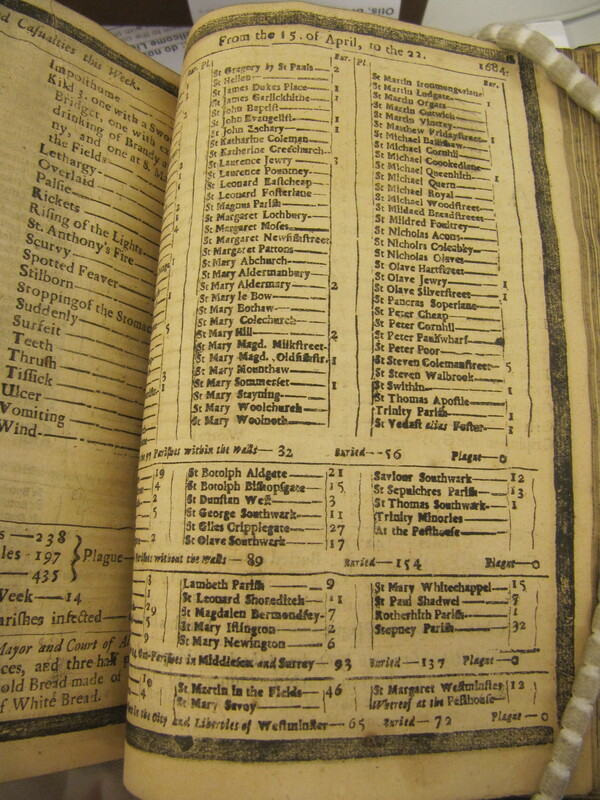 d Casualties this Week.
Imposthume
Kild 3. one with a Swo
Bridget, one with
drinking of Brandy
ny's, and one at S.
the Fields
Lethargy
Overlaid
Palsie
Rickets
Rising of the Lights
St. Anthony's Fire
Scurvy
Spotted Feaver
Stilborn
Stopping of the Stomac
Suddenly
Surfeit
Teeth
Thrush
Tissick
Ulcer
Vomiting
Wind
s — 238
les - 197 } Plague
435
Week — 14
arishes infected
Mayor and Court of A
ces, and three half
old Bread made of
f White Bread.
From the 15. of April, to the 22. 1684.
Bur. Pl.
St Gregory by St Pauls — 2
St Hellen
St James Dukes Place — 1
St James Garlickhithe — 1
St John Baptist
St John Evangelist — 1
St John Zachary — 1
St Katharine Coleman
St Katharine Creechurch
St Laurence Jewry — 3
St Laurence Pountney
St Leonard Eastcheap
St Leonard Fosterlane
St Magnus Parish
St Margaret Lothbury
St Margaret Moses
St Margaret Newfishstreet
St Margaret Pattons
St Mary Abchurch
St Mary Aldermanbury
St Mary Aldermary — 2
St Mary le Bow
St Mary Bothaw
St Mary Colechurch
St Mary Hill — 2
St Mary Magd. Milkstreet
St Mary Magd. Oldfishstr. 1
St Mary Mounthaw
St Mary Sommerset — 1
St Mary Stayning
St Mary Woolchurch
St Mary Woolnoth
Bur. Pl.
St Martin Ironmongerlane
St Martin Ludgate — 1
St Martin Orgats
St Martin Outwich
St Martin Vintrey
St Matthew Fridaystreet — 1
St Michael Bassishaw
St Michael Cornhil
St Michael Crookedlane
St Michael Queenhith — 1
St Michael Quern
St Michael Royal
St Michael Woodstreet
St Mildred Breadstreet
St Mildred Poultrey
St Nicholas Acons
St Nicholas Coleabby
St Nicholas Olaves
St Olave Hartstreet
St Olave Jewry — 1
St Olave Silverstreet — 1
St Pancras Soperlane
St Peter Cheap
St Peter Cornhil
St Peter Paulswharf
St Peter Poor
St Steven Colemanstreet — 5
St Steven Walbrook
St Swithin — 1
St Thomas Apostle
Trinity Parish — 1
St Vedast alias Foster — 1
Parishes within the Walls — 32 Buried — 56 Plague — 0
St Botolph Aldgate — 21
St Botolph Bishopsgate — 15
St Dunstan West — 3
St George Southwark — 11
St Giles Cripplegate — 27
St Olave Southwark — 17
Saviour Southwark — 12
St Sepulchres Parish — 13
St Thomas Southwark — 1
Trinity Minories
At the Pesthouse
Parishes without the Walls — 89 Buried — 154 Plague — 0
Lambeth Parish — 9
St Leonard Shoreditch — 11
St Magdalen Bermondsey — 7
St Mary Islington — 2
St Mary Newington — 6
St Mary Whitechappel — 15
St Paul Shadwel
Rotherhith Parish — 1
Stepney Parish — 32
Out-Parishes in Middlesex and Surrey — 93 Buried — 137 Plague — 0
St Martin in the Fields — 46
St Mary Savoy
St Margaret Westminster 12
Whereof at the Pesthouse
in the City and Liberties of Westminster — 65 Buried — 72 Plague — 0